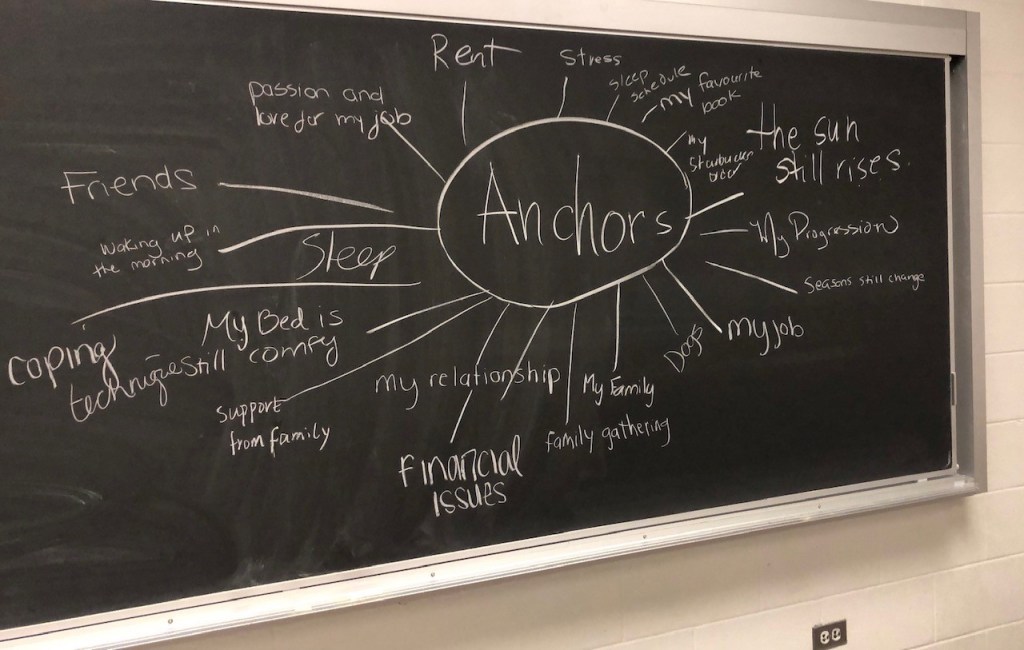 Rent
Stress
sleep
schedule
my favourite
book
passion and
love for my job
my
Starbucks
the sun
still rises.
Friends
Anchors
My Progression
waking up in
the morning
Sleep
Seasons still change
My Bed is
still comfy
coping
technique
Dogs
my job
my relationship
My Family
support
from family
family gathering
financial
issues